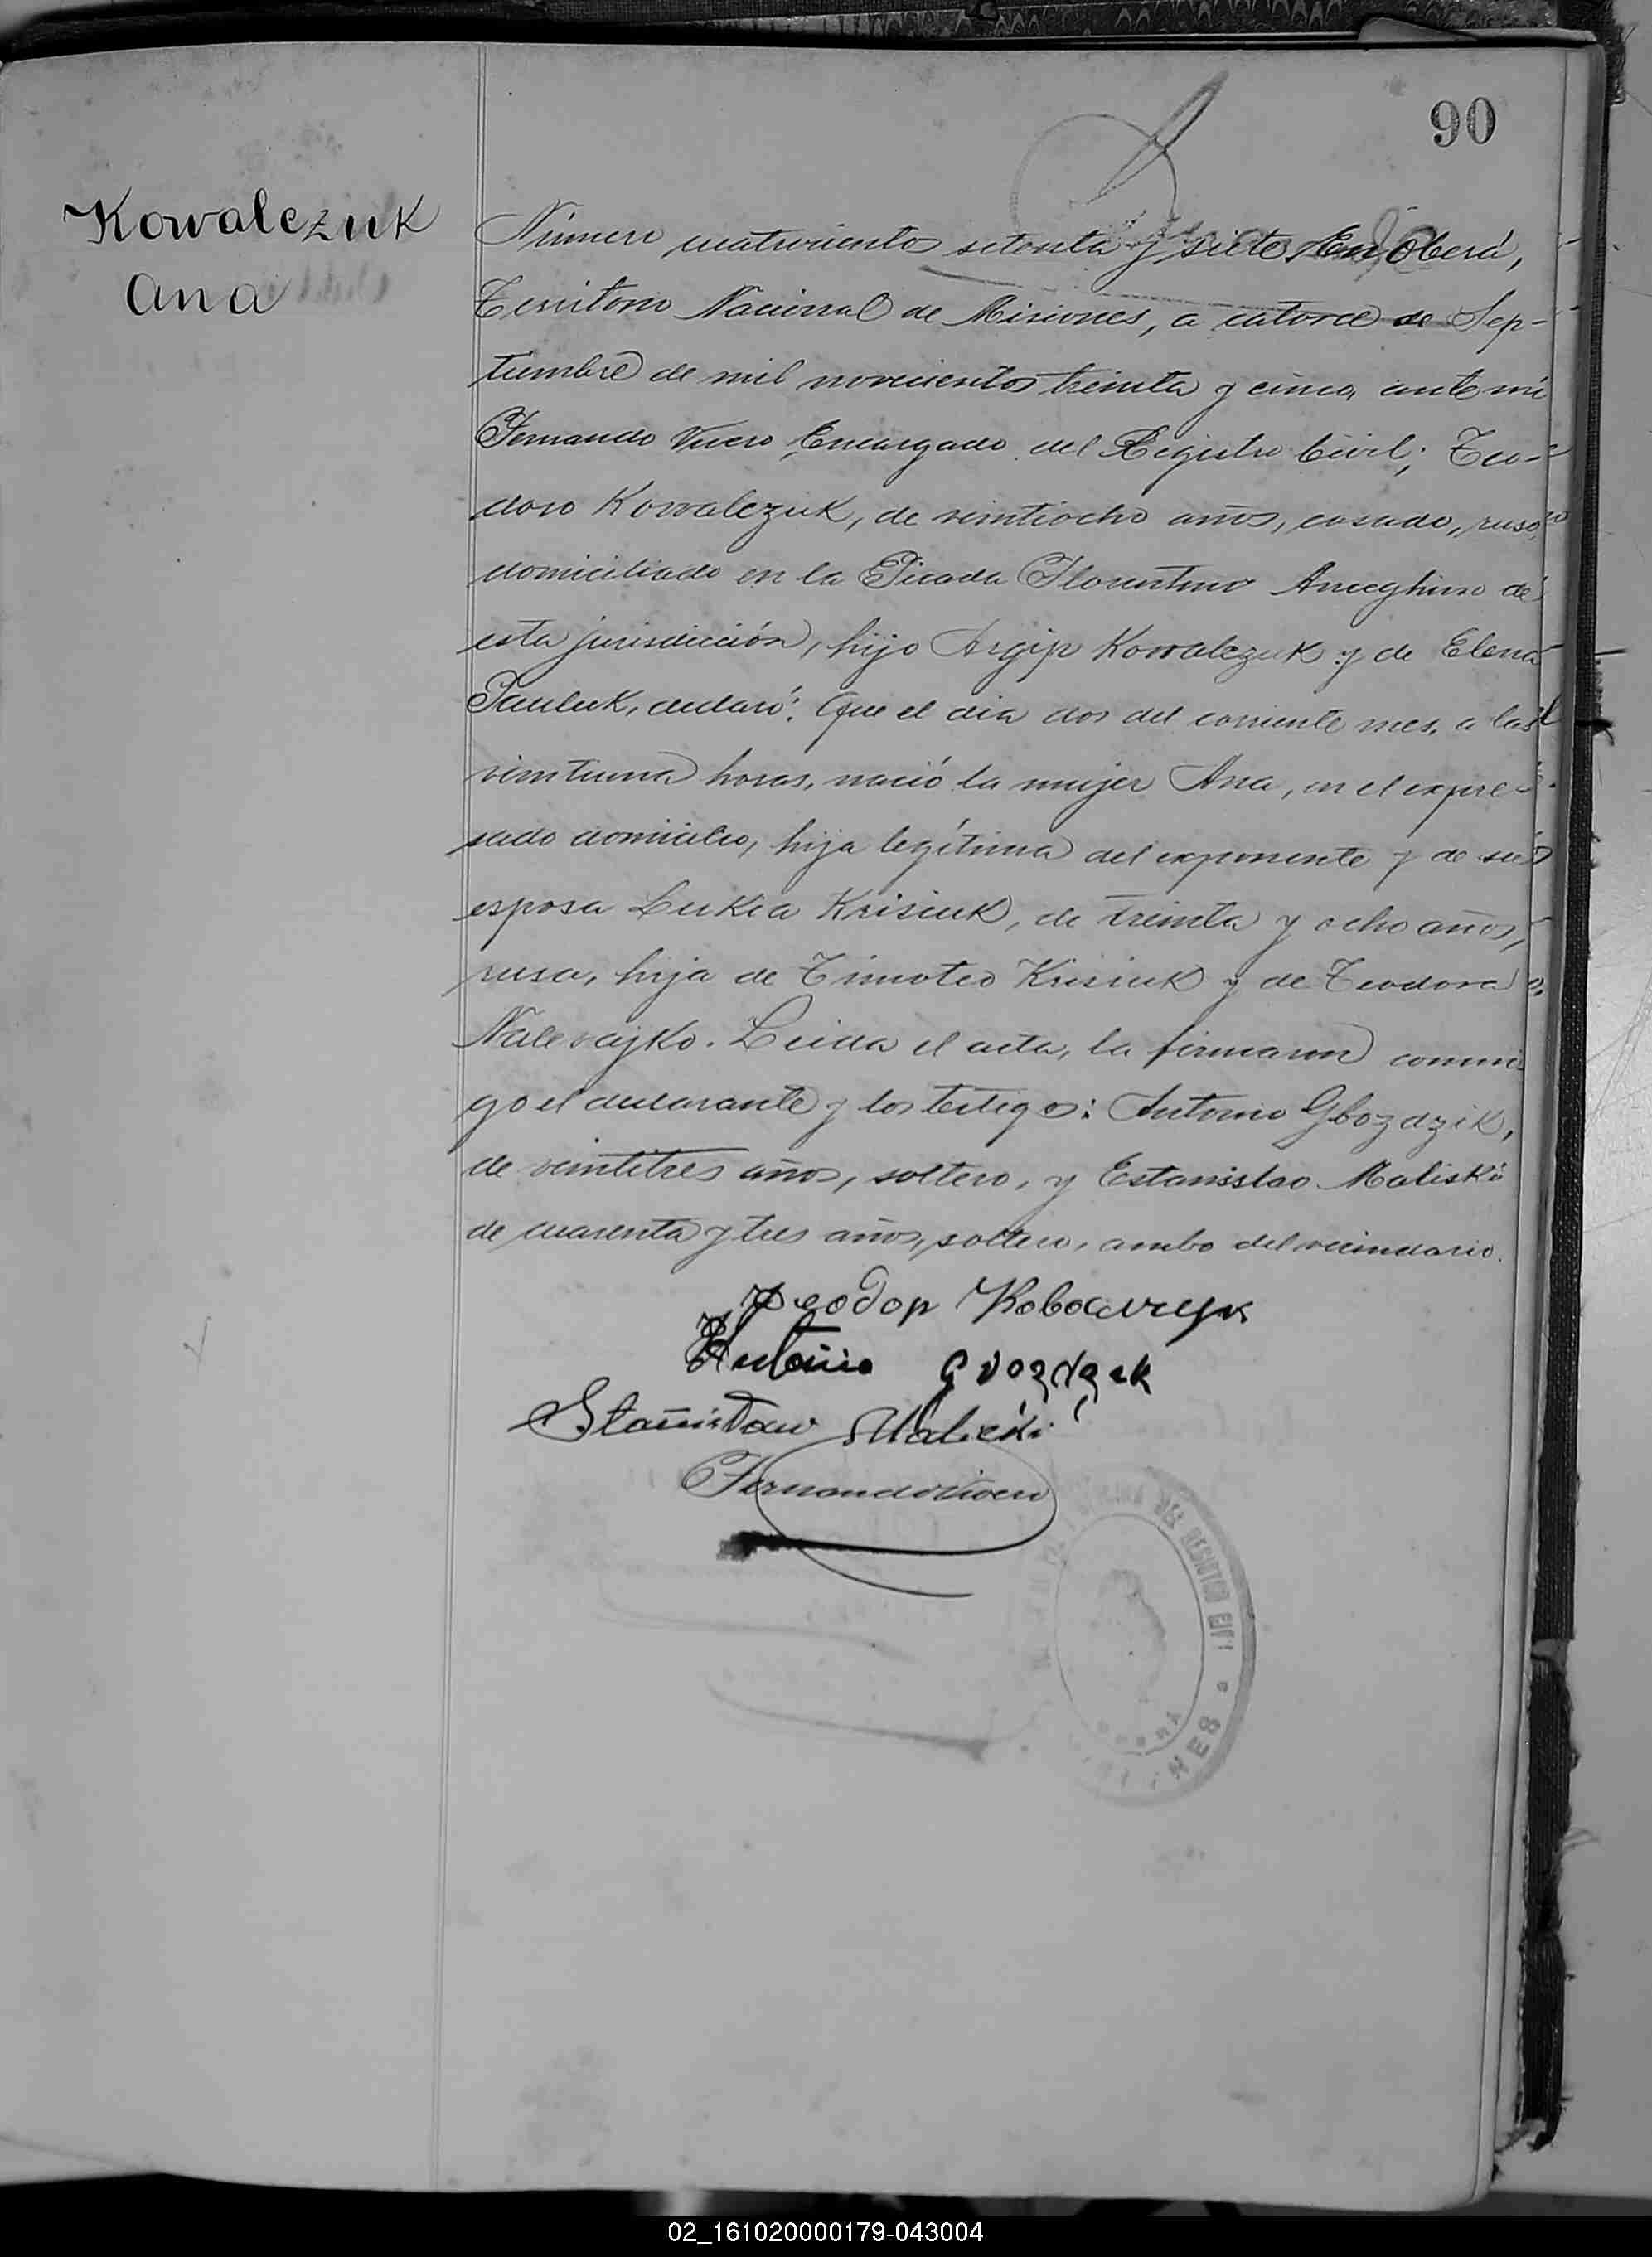 90
Kowalczuk
Ana
Número cuatrocientos setenta y siete En Oberá,
Territorio Nacional de Misiones, a catorce de Sep-
tiembre de mil novecientos treinta y cinco, ante mí
Fernando Vivero Encargado del Registro Civil; Teo-
doro Kowalczuk, de veintiocho años, casado, ruso
domiciliado en la Picada Florentino Ameghino de
esta jurisdicción, hijo Argip Kowalczuk y de Elena
Pauluk, declaró: Que el dia dos del corriente mes, a las
veintiuna horas, nació la mujer Ana, en el expre-
sado domicilio, hija legítima del exponente y de su
esposa Lukia Krisiuk, de treinta y ocho años,
rusa, hija de Timoteo Krisiuk y de Teodora
Nalevajko. Leida el acta, la firmaron conmi
go el declarante y los testigos: Antonio Gbozdzik,
de veintitres años, soltero, y Estanislao Maliski
de cuarenta y tres años, soltero, ambo del vecindario.
Antonio Gvozdzek
Stanisław Maliski
DEL REGISTRO CIVIL
MISIONES
02_161020000179-043004